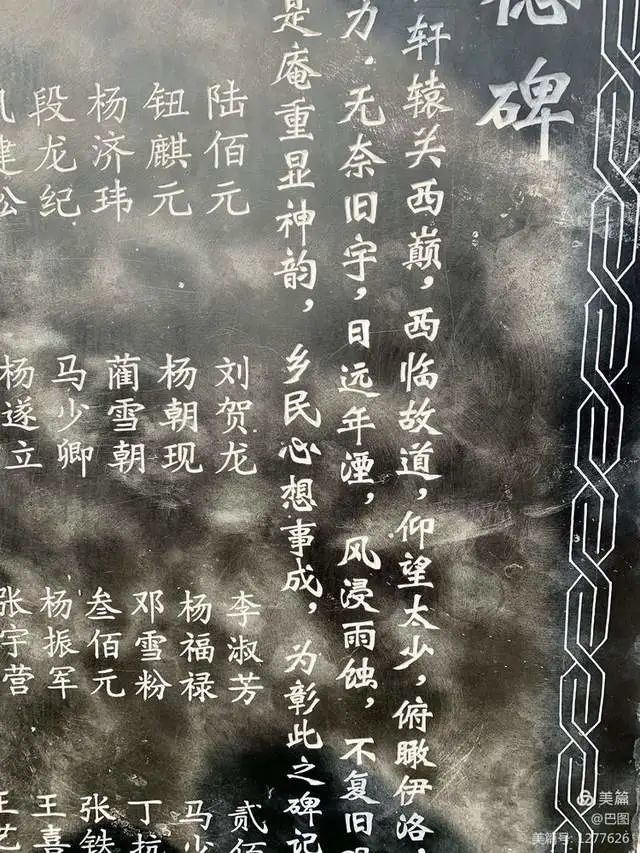 德碑
轩辕关西巅，西临故道，仰望太少，俯瞰伊洛，
力．无奈旧宇，日远年湮，风浸雨蚀，不复旧
是庵重显神韵，乡民心想事成，为彰此之碑记
陆佰元 刘贺龙 李淑芳 贰佰
钮麒元 杨朝现 杨福禄 马少
杨济玮 蔺雪朝 邓雪粉 丁抗
段龙纪 马少卿 叁佰元 张铁
建松 杨遂立 杨振军 王喜
张宇营 王艺
美篇
@巴图
美篇号：1277626